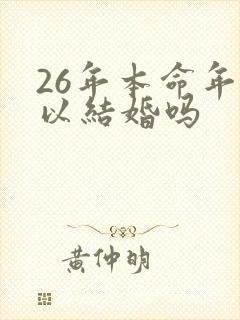 26年本命年
以結婚吗
黄仲明